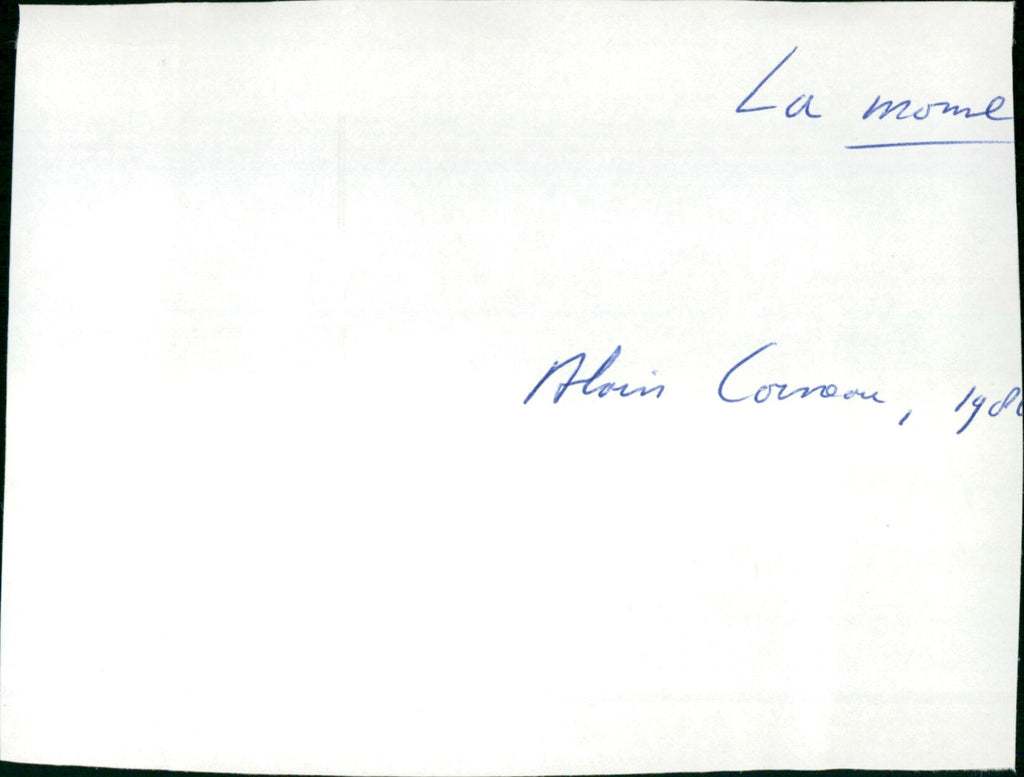 La mome
Alain Corneau, 198